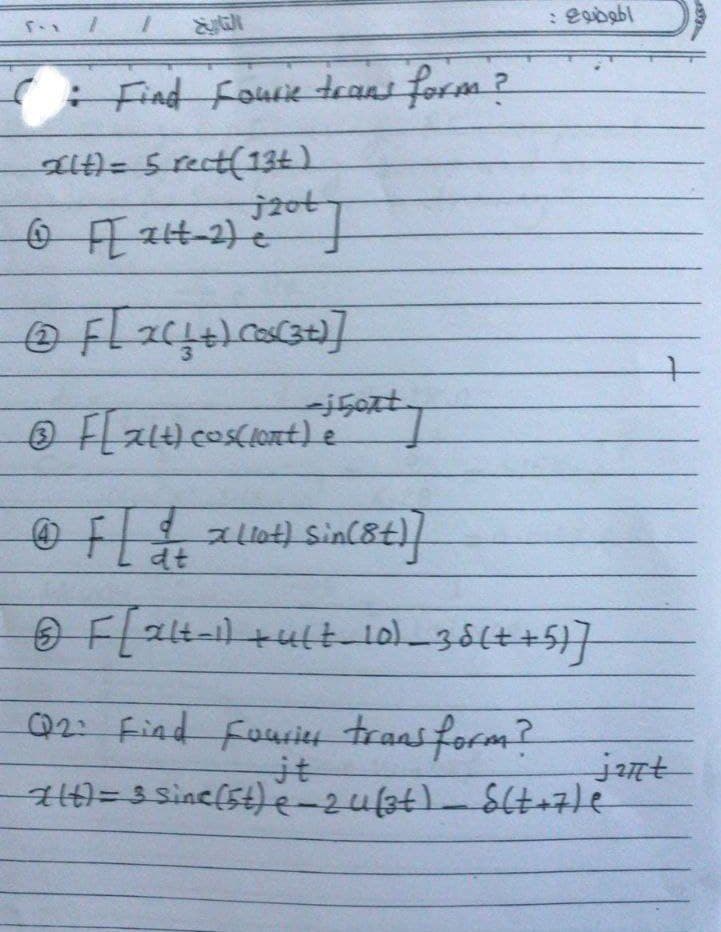 الموضوع :
التاريخ / / ٢٠٠
: Find Fourie trans form?
x(t) = 5 rect(13t)
① F[ x(t-2) e^{j20t} ]
② F[ x(1/3 t) cos(3t)]
③ F[x(t) cos(10πt) e^{-j50πt} ]
④ F[ d/dt x(10t) sin(8t)]
⑤ F[x(t-1) + u(t-10) - 3δ(t+5)]
Q2: Find Fourier trans form?
x(t) = 3 sinc(5t) e^{jt} - 2 u(3t) - δ(t+7) e^{j2πt}